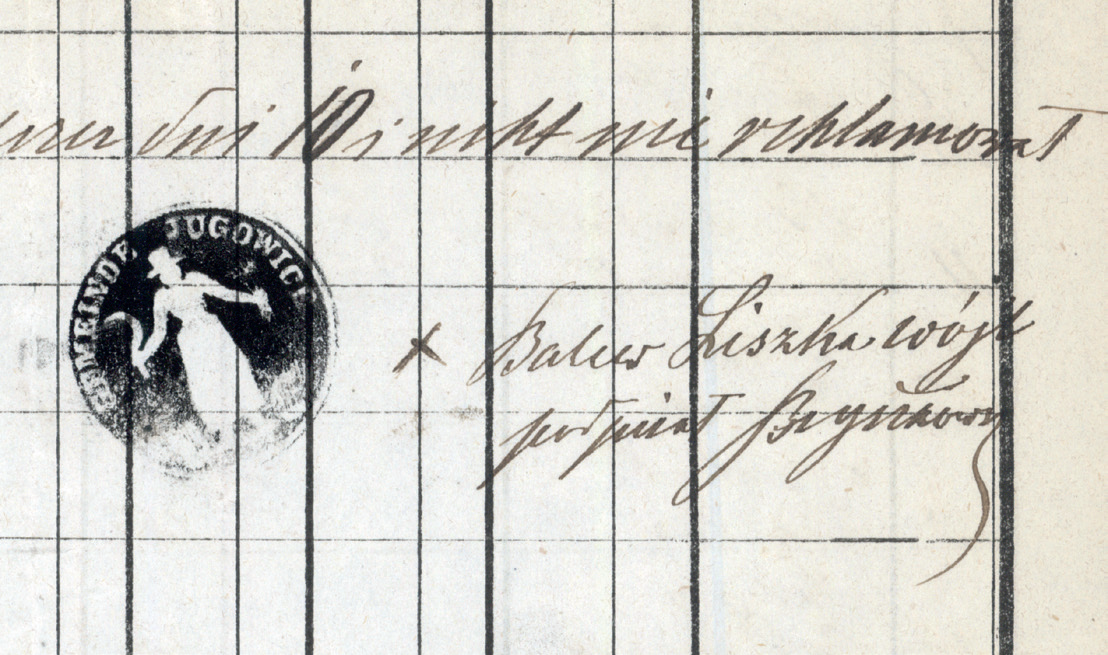 dni 10 i nikt nie reklamował
GEMEINDE JUGOWICE
+ Balcer Liszka wójt
podpisał